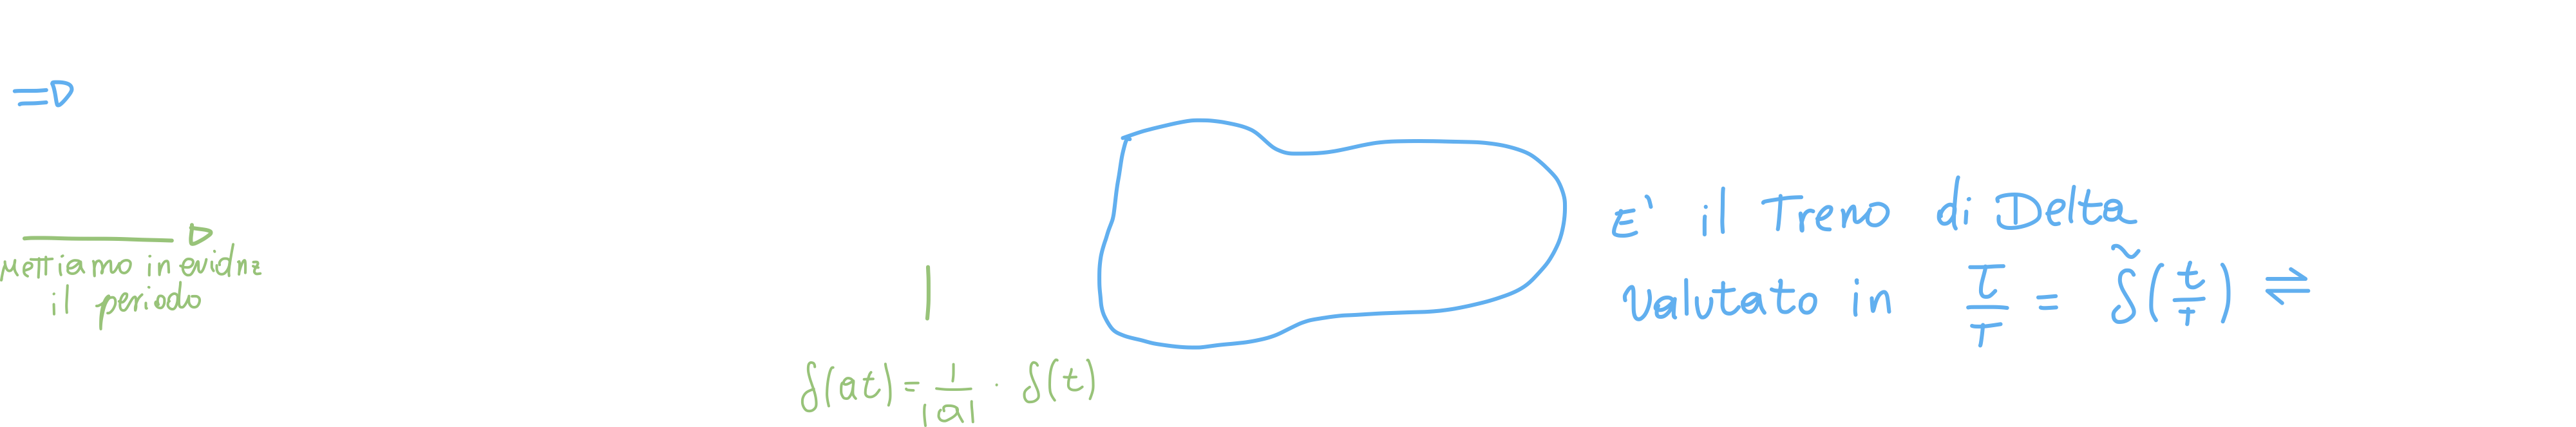 =D
mettiamo in evidnz
il periodo
δ(at) = 1/|a| · δ(t)
E' il Treno di Delta
valutato in τ/T = δ̃(t/T) ⇌